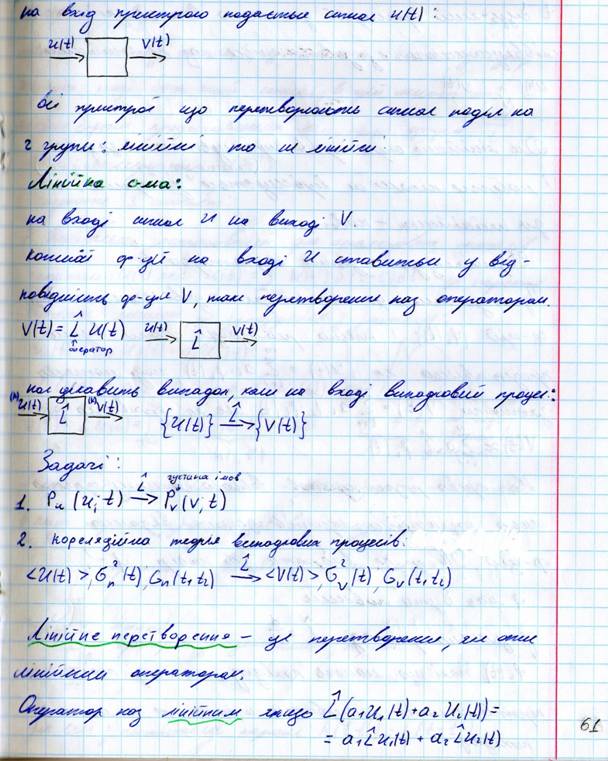 на вхід пристрою подається сигнал u(t):
u(t) V(t)
Всі пристрої що перетворюють сигнал поділ на
2 групи: лінійні та не лінійні.
Лінійна с-ма:
на вході сигнал u на виході V.
кожній ф-ції на вході u ставиться у від-
повідність ф-ція V, таке перетворення наз оператором.
V(t) = L̂ u(t) u(t) L̂ V(t)
оператор
нас цікавить випадок, коли на вході випадковий процес:
(k)u(t) L̂ (k)V(t) {u(t)} L̂→ {V(t)}
Задачі:
густина імов
1. Pu (u; t) L̂→ Pv (v, t)
2. кореляційна теорія випадкових процесів.
<u(t)>, σ²u(t), Gu(t₁t₂) L̂→ <V(t)>, σ²v(t), Gv(t₁t₂)
Лінійне перетворення – це перетворення, яке опис
лінійним оператором.
Оператор наз лінійним якщо L̂(a₁u₁(t)+a₂u₂(t))=
= a₁L̂u₁(t) + a₂L̂u₂(t)
61